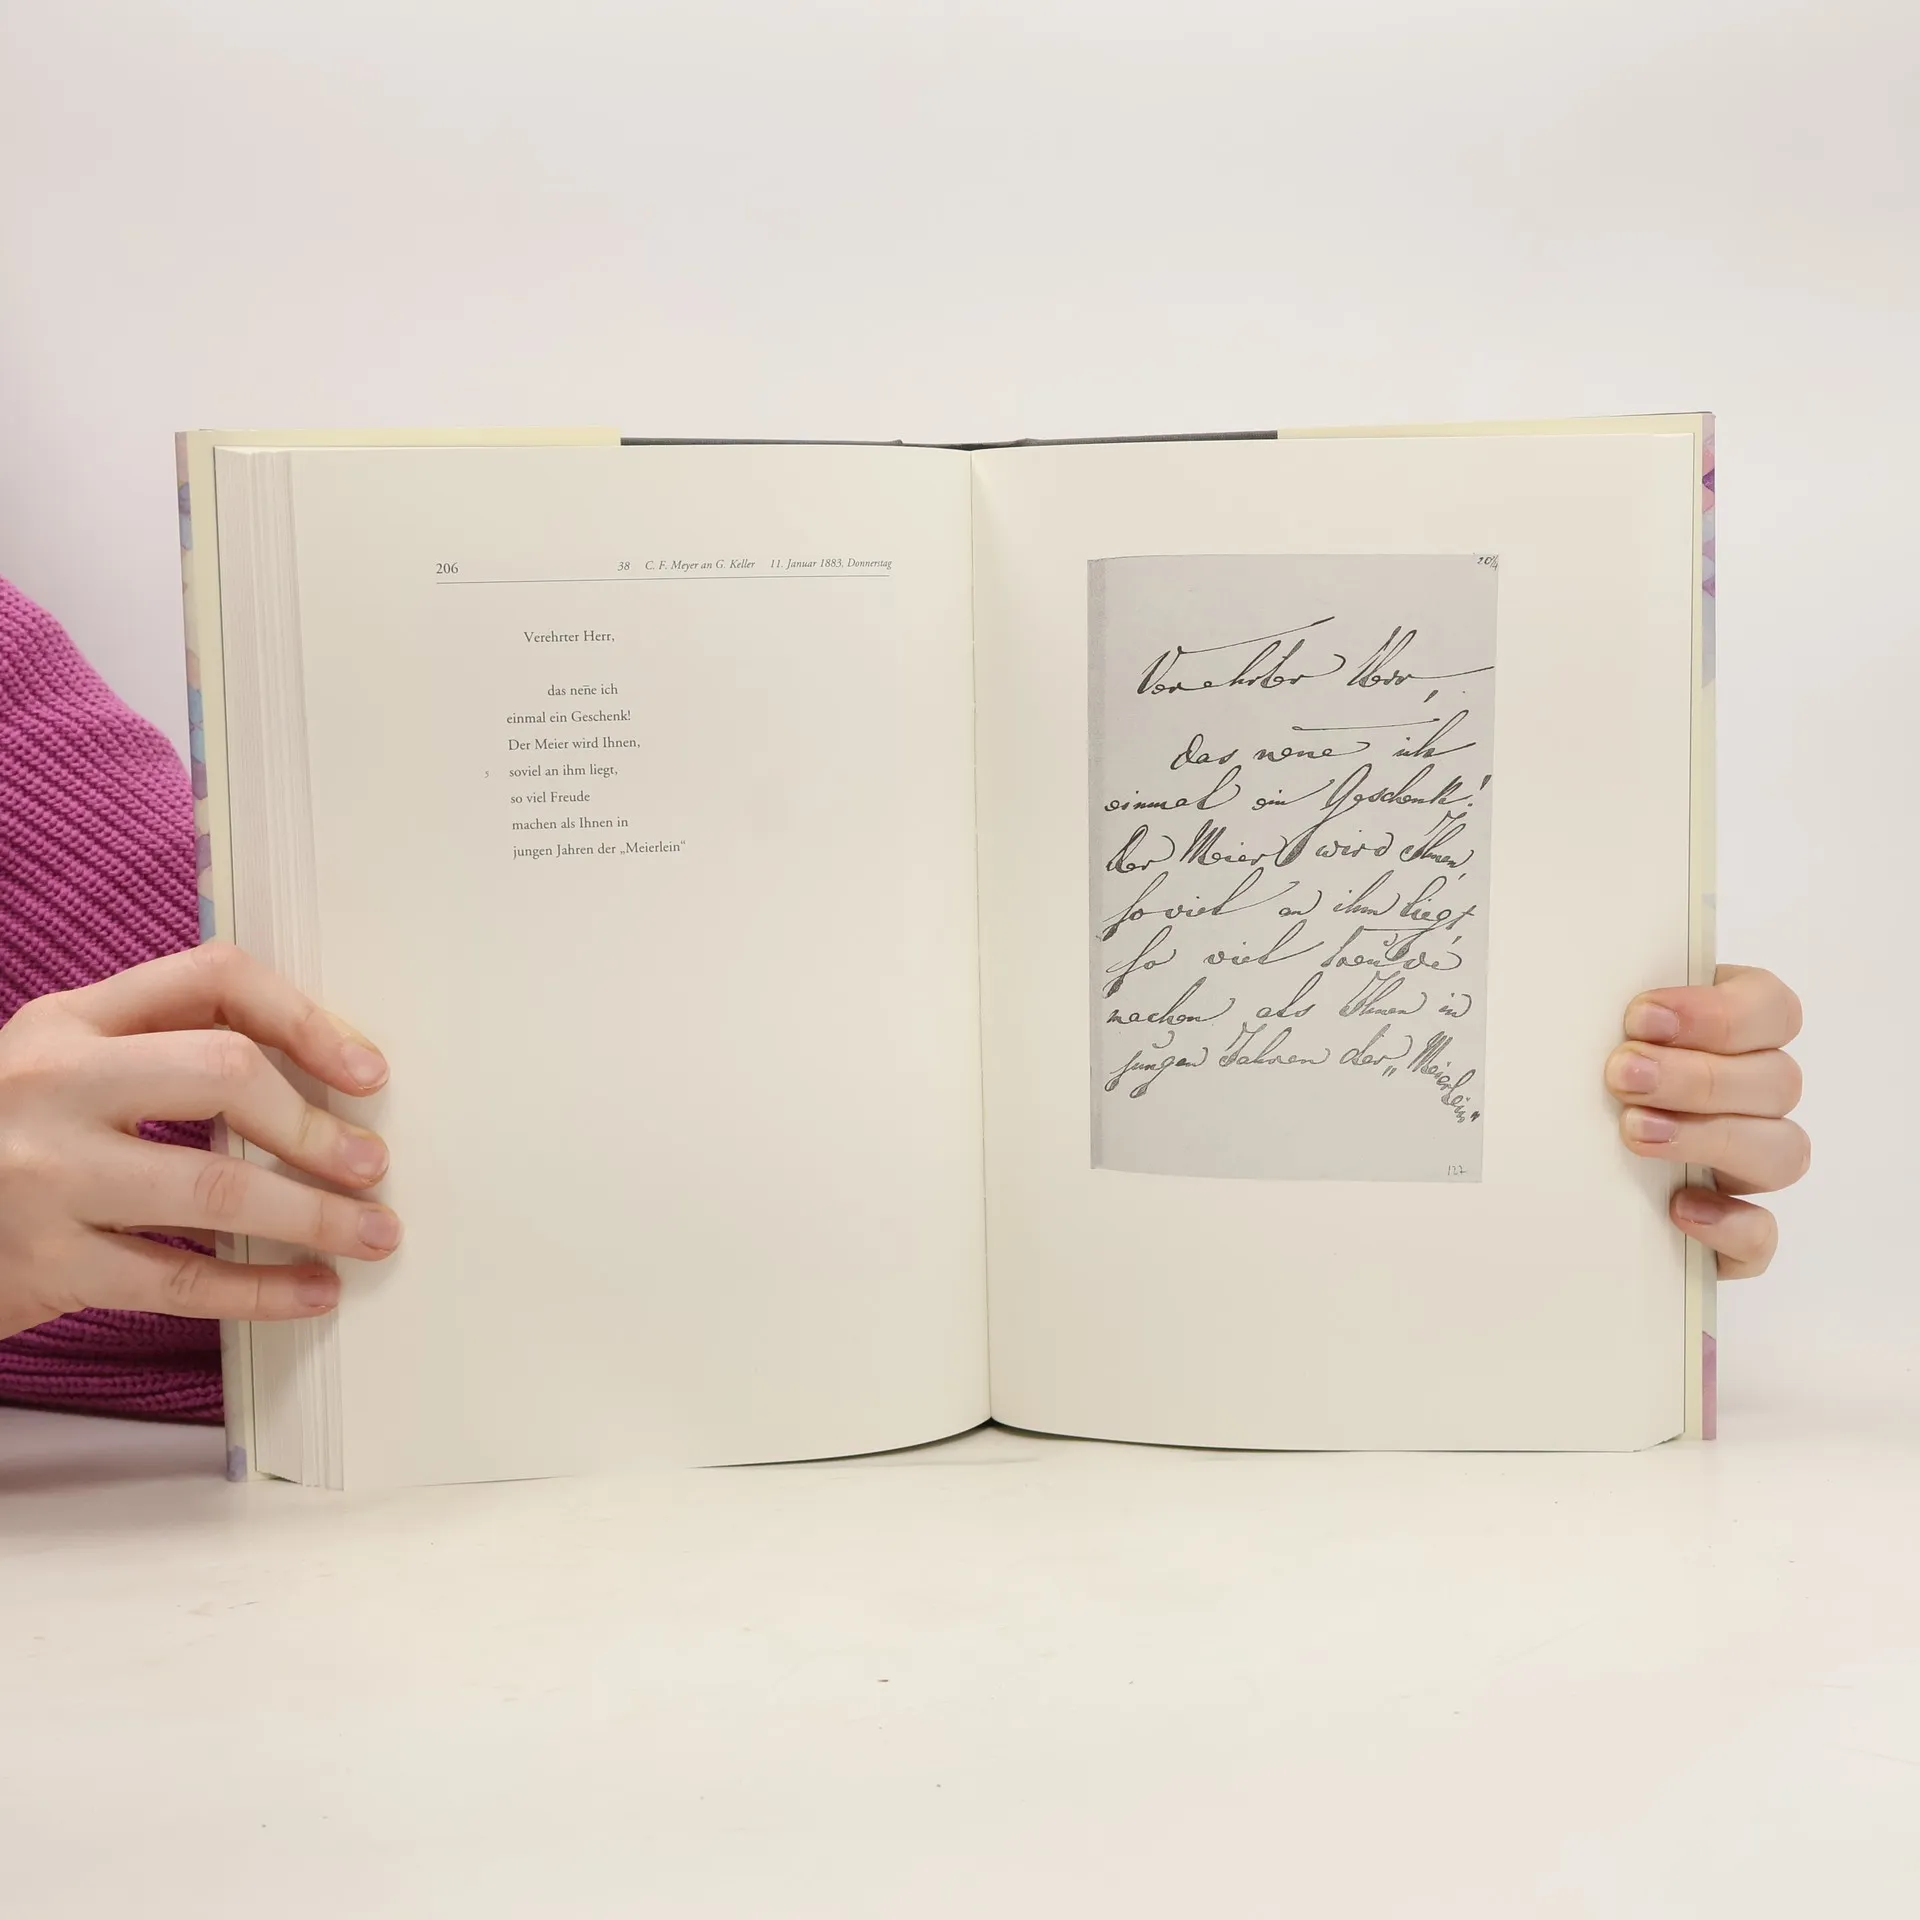 206 38 C. F. Meyer an G. Keller 11. Januar 1883, Donnerstag
Verehrter Herr,
das nen̄e ich
einmal ein Geschenk!
Der Meier wird Ihnen,
5 soviel an ihm liegt,
so viel Freude
machen als Ihnen in
jungen Jahren der „Meierlein“
Verehrter Herr,
das nen̄e ich
einmal ein Geschenk!
Der Meier wird Ihnen,
soviel an ihm liegt,
so viel Freude
machen als Ihnen in
jungen Jahren der „Meierlein“
127